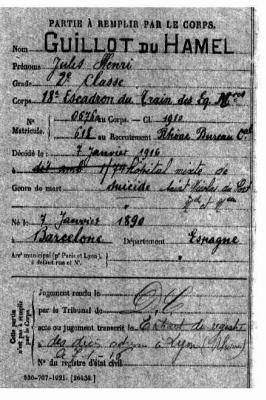 PARTIE À REMPLIR PAR LE CORPS.
Nom GUILLOT DU HAMEL
Prénoms Jules Henri
Grade 2e Classe
Corps 18e Escadron du Train des Eq. Mres
N° 0676 au Corps. — Cl. 1910
Matricule. 618 au Recrutement Rhône Bureau Cal
Décédé le 7 Janvier 1916
à Hôpital mixte de
Genre de mort Suicide
Né le 7 Janvier 1890
à Barcelone Département Espagne
Arrt municipal (pr Paris et Lyon), à défaut rue et N°.
Cette partie n'est pas à remplir par le Corps.
Jugement rendu le
par le Tribunal de
acte ou jugement transcrit le Extrait de
des décès à Lyon (Rhône)
N° du registre d'état civil
530-707-1921. [26434.]